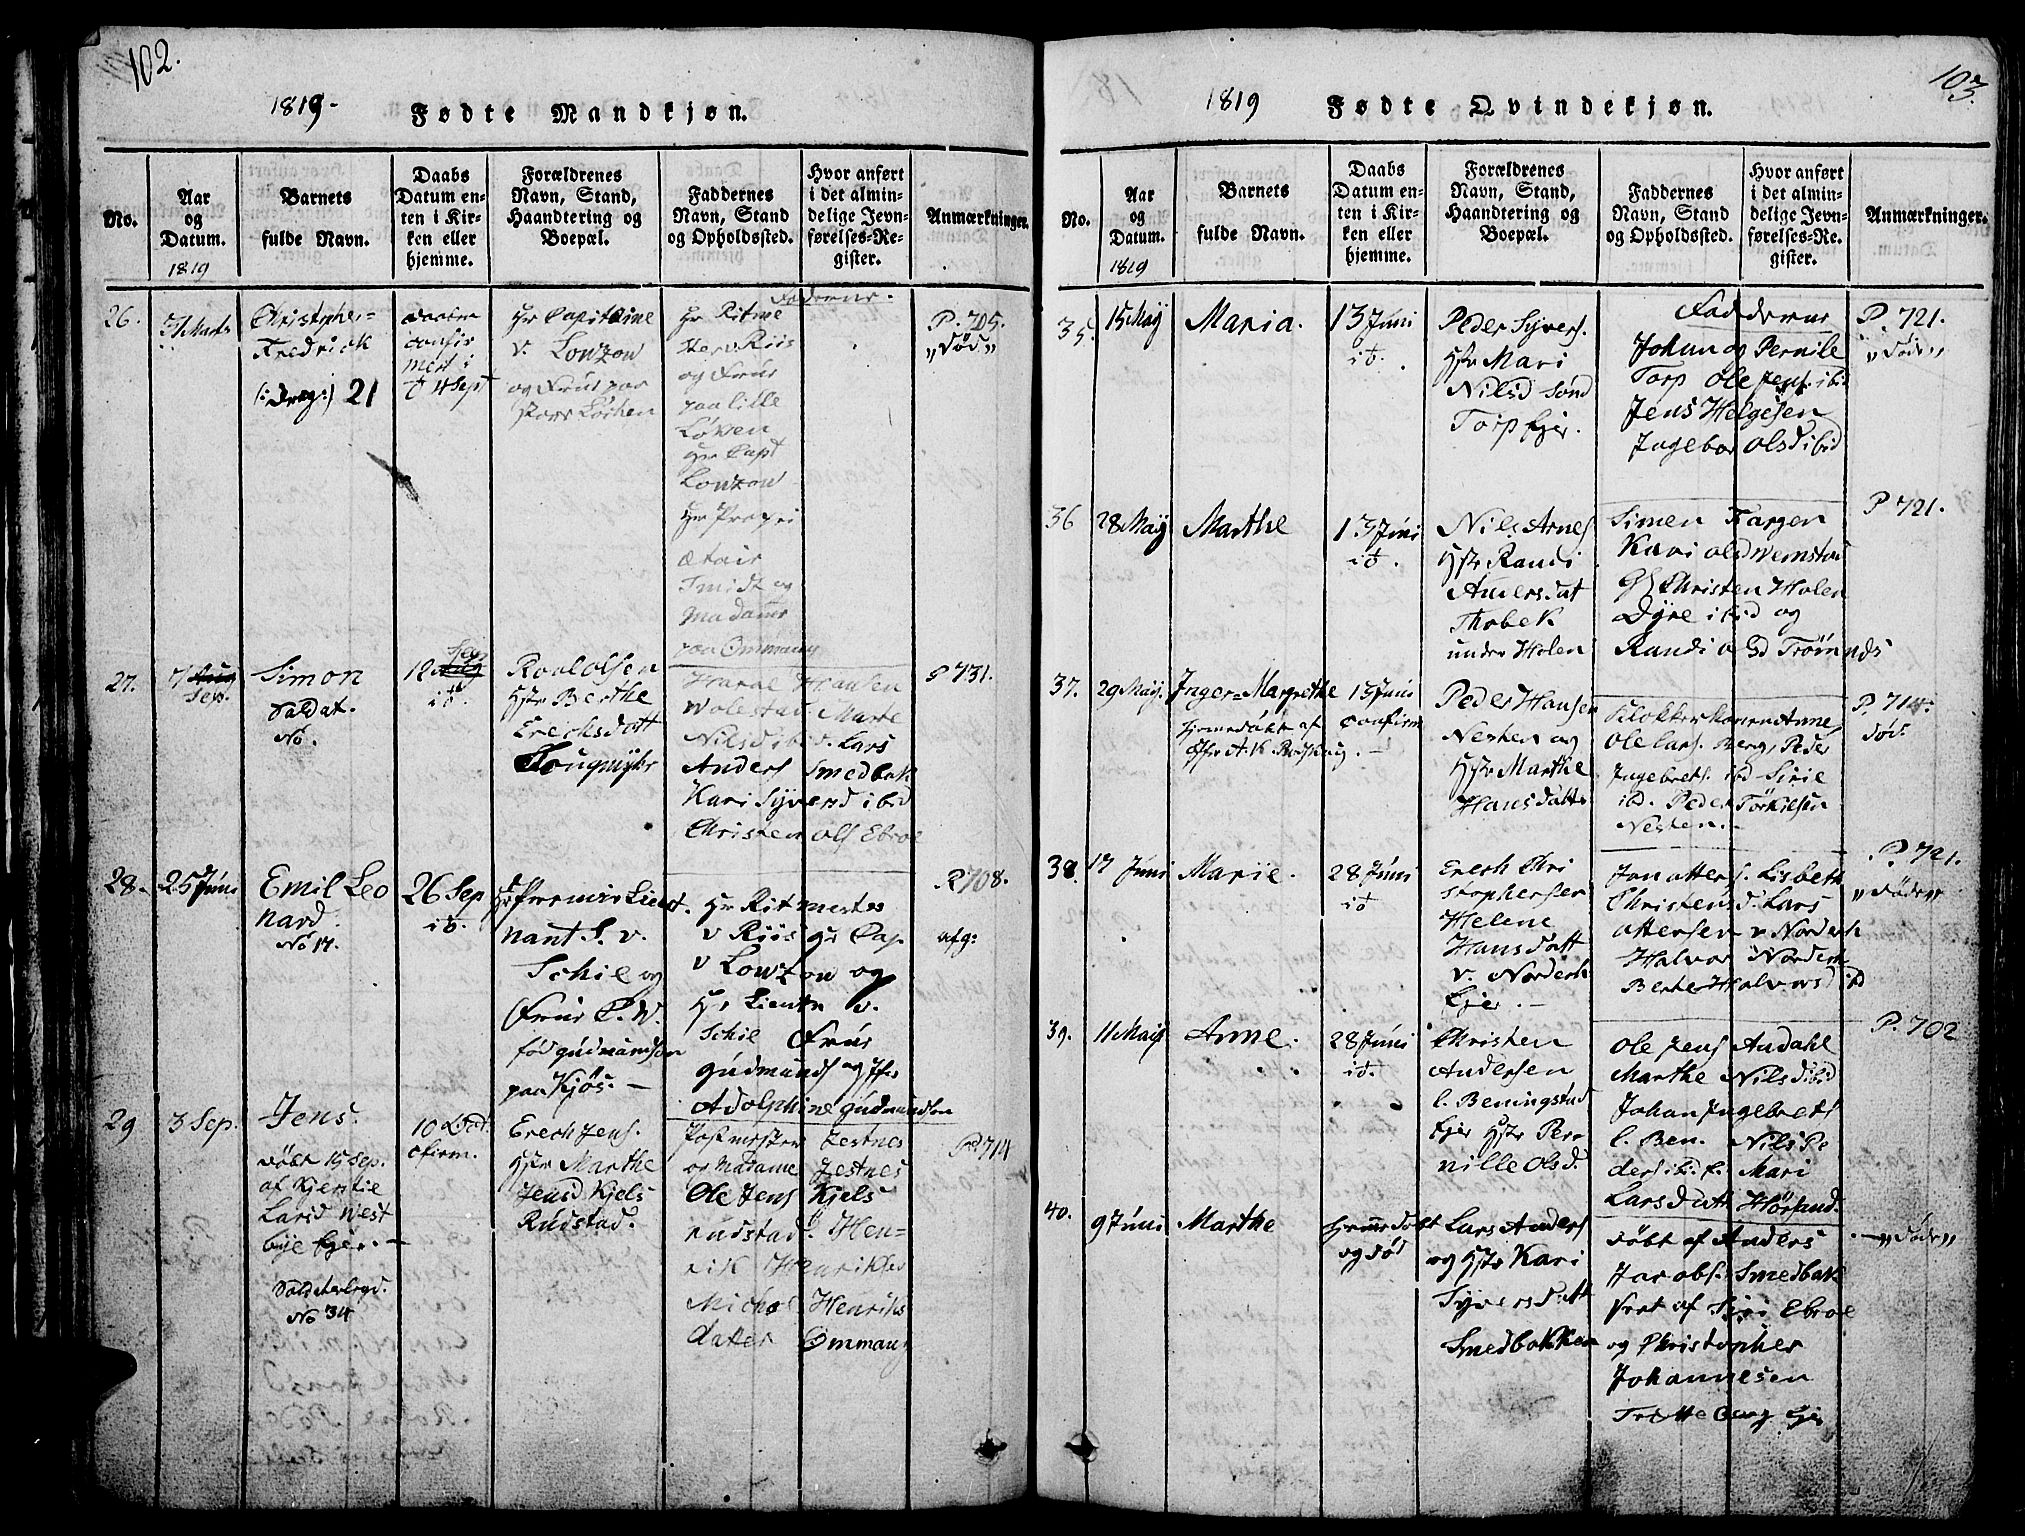 102.
1819-
Fødte Mandkjøn.
No.
Aar
og
Datum.
1819
Barnets
fulde Navn.
Daabs
Datum en-
ten i Kir-
ken eller
hjemme.
Forældrenes
Navn, Stand,
Haandtering og
Boepæl.
Faddernes
Navn, Stand
og Opholdssted.
Hvor anført
i det almin-
delige Jevn-
førelses-Re-
gister.
Anmærkninger.
26.
Marts
Christopher=
Fredrick
21
4 Sept
Hr Capitaine
v. Lowzow
og Frue paa
Løiten
Hr Ritme
ster v Riis
og Frue
paa lille
Løten
Hr Capt
Lowzow
Hr Propri
ætair
Smidt og
Madame
paa Ommang
P. 705.
„Død„
27.
7 Aug
Sep.
Simon
Soldat.
No.
12 Aug
Sep
it.
Roal Olsen
Hstr Berthe
Erichsdatt
Hansen
Wolestad Marte
Nilsd ibid. Lars
Anders Smedbak
Kari Syversd ibid
Christen Ols Ebroe
P 731.
28.
25 Juni
Emil Leo
nard.
No 17.
26 Sep
it.
Hr Premier Lieut
nant S. v.
Schie og
Frue C. W.
fød Gudmundson
paa Kjøs. —
Hr Ritmester
v Riis Hr Cap.
v Lowzow og
Hr Lieutn v.
Schie Frue
Gudmunds og Jfr
Adolphine Gudmundson
P. 708.
afg:
29
3 Sep.
Jens.
døbt 15 Sep.
af Kjerstie
Larsd West
bye Ejer. —
No 34
10
cfirm.
Erech Jens.
Hstr Marthe
Jensd Kjels
Rudstad.
Postmester Zestnes
or Madame Zestnes
Ole Jens Kjels
rudstad. Hen-
rik Henrikss
Henriks
datter Ommang
P 714
103.
1819
Fødte Qvindekjøn.
No.
Aar
og
Datum.
1819
Barnets
fulde Navn.
Daabs
Datum en-
ten i Kir-
ken eller
hjemme.
Forældrenes
Navn, Stand,
Haandtering og
Boepæl.
Faddernes
Navn, Stand
og Opholdssted.
Hvor anført
i det almin-
delige Jevn-
førelses-Re-
gister.
Anmærkninger.
35.
15 May
Maria.
13 Juni
it.
Peder Syvers.
Hstr Mari
Nilsd Sønd
Torp Ejer.
Faddernes
Johan og Pernile
Torp Ole Jens. ibid
Jens Helgesen
Ingebor Olsd ibid
P. 721.
„døde„
36
28 May
Marthe
13 Juni
it.
Nils Arnes
Hstr Randi
Andersdat
Thobek
under Holen
Simen Fargen
Kari Olsd Wemstad
Christen Holen
Dyre ibid og
Randi Trømnds
P 721.
37.
29 May.
Inger=Margrethe
hjemedøbt af
13 Juni
confirm
Peder Hansen
Nesten og
Hstr Marthe
Hansdatt
Klokker Anne
Ole Lars. Berg, Peder
Ingebrets. ibd Sirie
ibd. Peder Torkilsen
Nesten.—
P. 714.
død.
38.
17 Juni
Marie.
28 Juni
it
Erech Chri
stophersen
Helene
Hansdatt
v. Norderh
Ejer. —
Jan Atters. Lisbeth
Christensd. Lars
Attersen v Norderh
Halvor Norderh
Berte Halvorsd ibd
P. 721.
„døde„
39.
11 May
Anne.
28 Juni
it.
Christen
Andersen
l. Beningstad
Ejer Hstr Per
nille Olsd.
Ole Jens Andahl
Marthe Nilsd ibid
Johan Ingebrets
l. Ben. Nils Pe
ders ibid. Mari
Larsdatt Hørsand.
P. 702
40.
9 Juni
Marthe
hjemedøbt
og død
Lars Anders
og Hstr Kari
Syversdatt
Smedbakken
døbt af Anders
Jacobs. Smedbak
Siri Ebroe
og Christopher
Johannesen
—„døde„